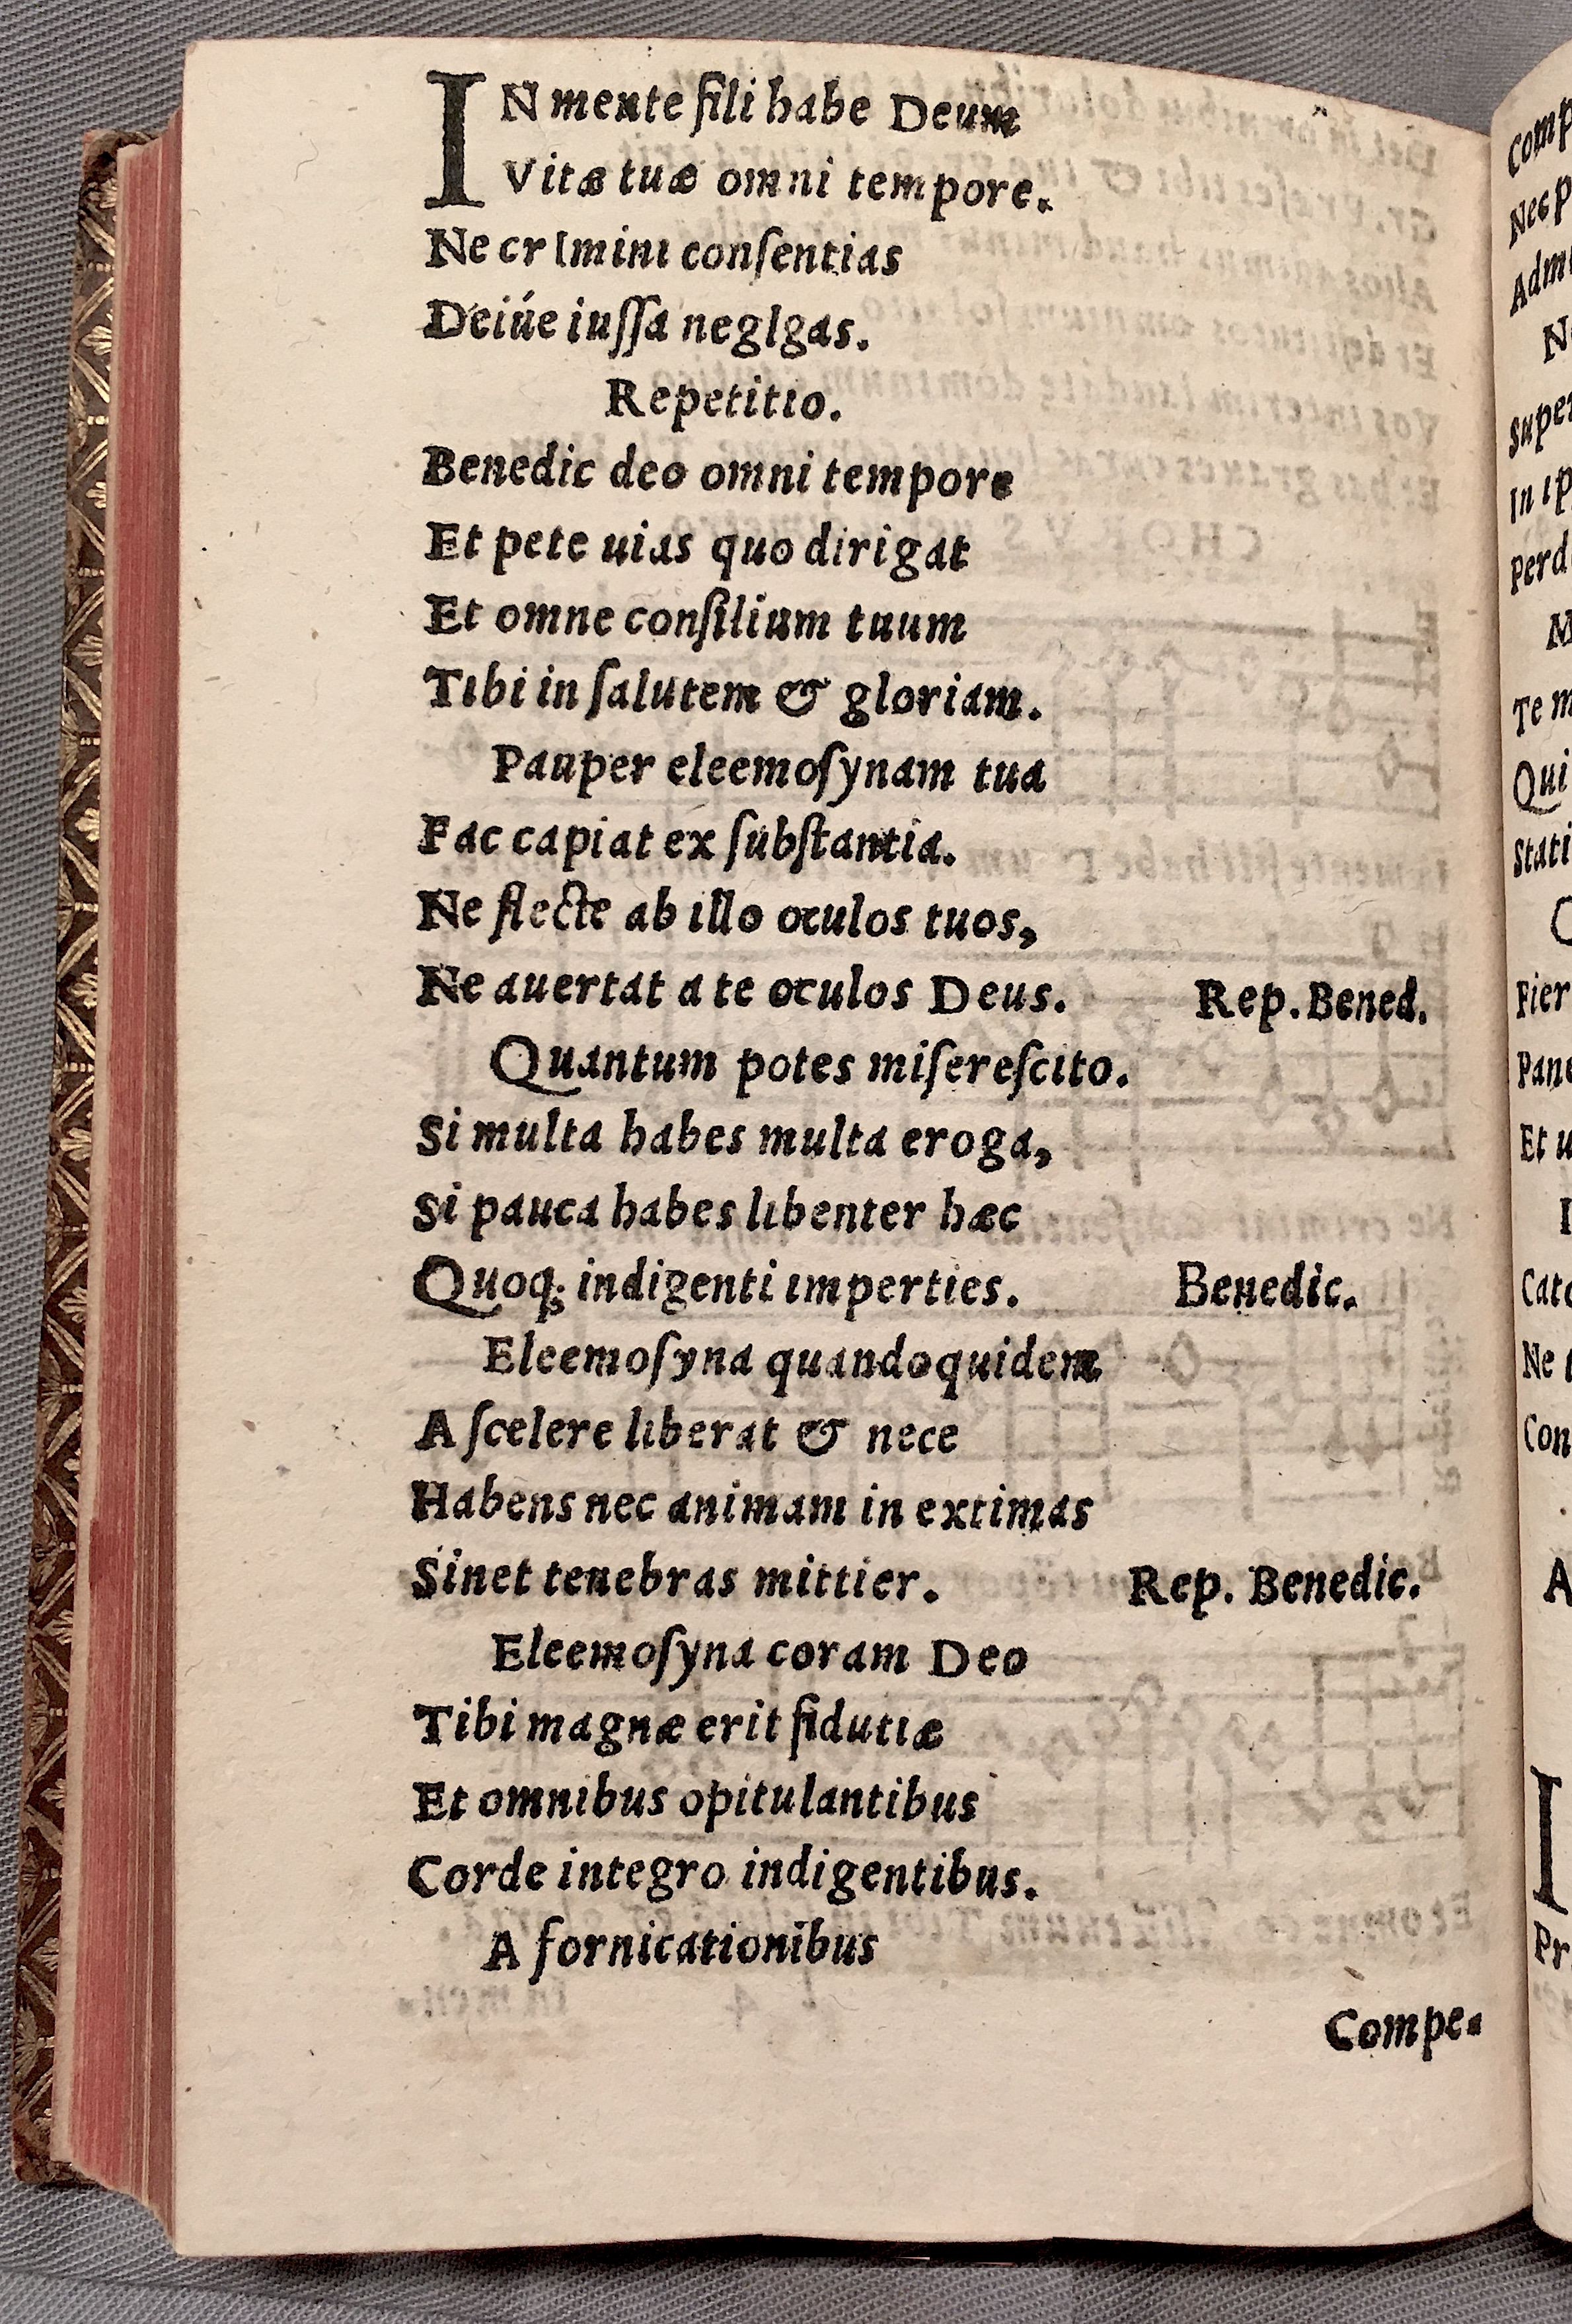 IN mente fili habe Deum
Vitæ tuæ omni tempore.
Ne crImini conſentias
Deiúe iuſſa neglgas.
Repetitio.
Benedic deo omni tempore
Et pete uias quo dirigat
Et omne conſilium tuum
Tibi in ſalutem & gloriam.
Pauper eleemoſynam tua
Fac capiat ex ſubſtantia.
Ne flecte ab illo oculos tuos,
Ne auertat a te oculos Deus. Rep. Bened.
Quantum potes miſereſcito.
Si multa habes multa eroga,
Si pauca habes libenter hæc
Quoq; indigenti imperties. Benedic.
Eleemoſyna quandoquidem
A ſcelere liberat & nece
Habens nec animam in extimas
Sinet tenebras mittier. Rep. Benedic.
Eleemoſyna coram Deo
Tibi magnæ erit fidutiæ
Et omnibus opitulantibus
Corde integro indigentibus.
A fornicationibus
Compe-